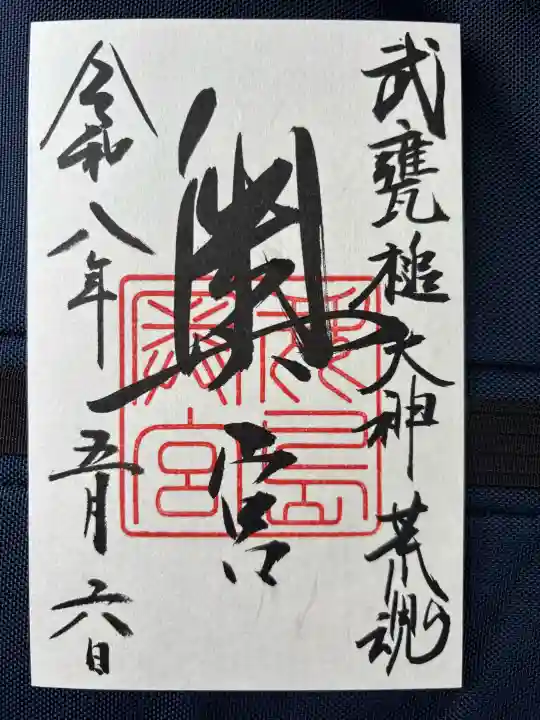 武甕槌大神 荒魂
奥宮
令和八年 五月六日